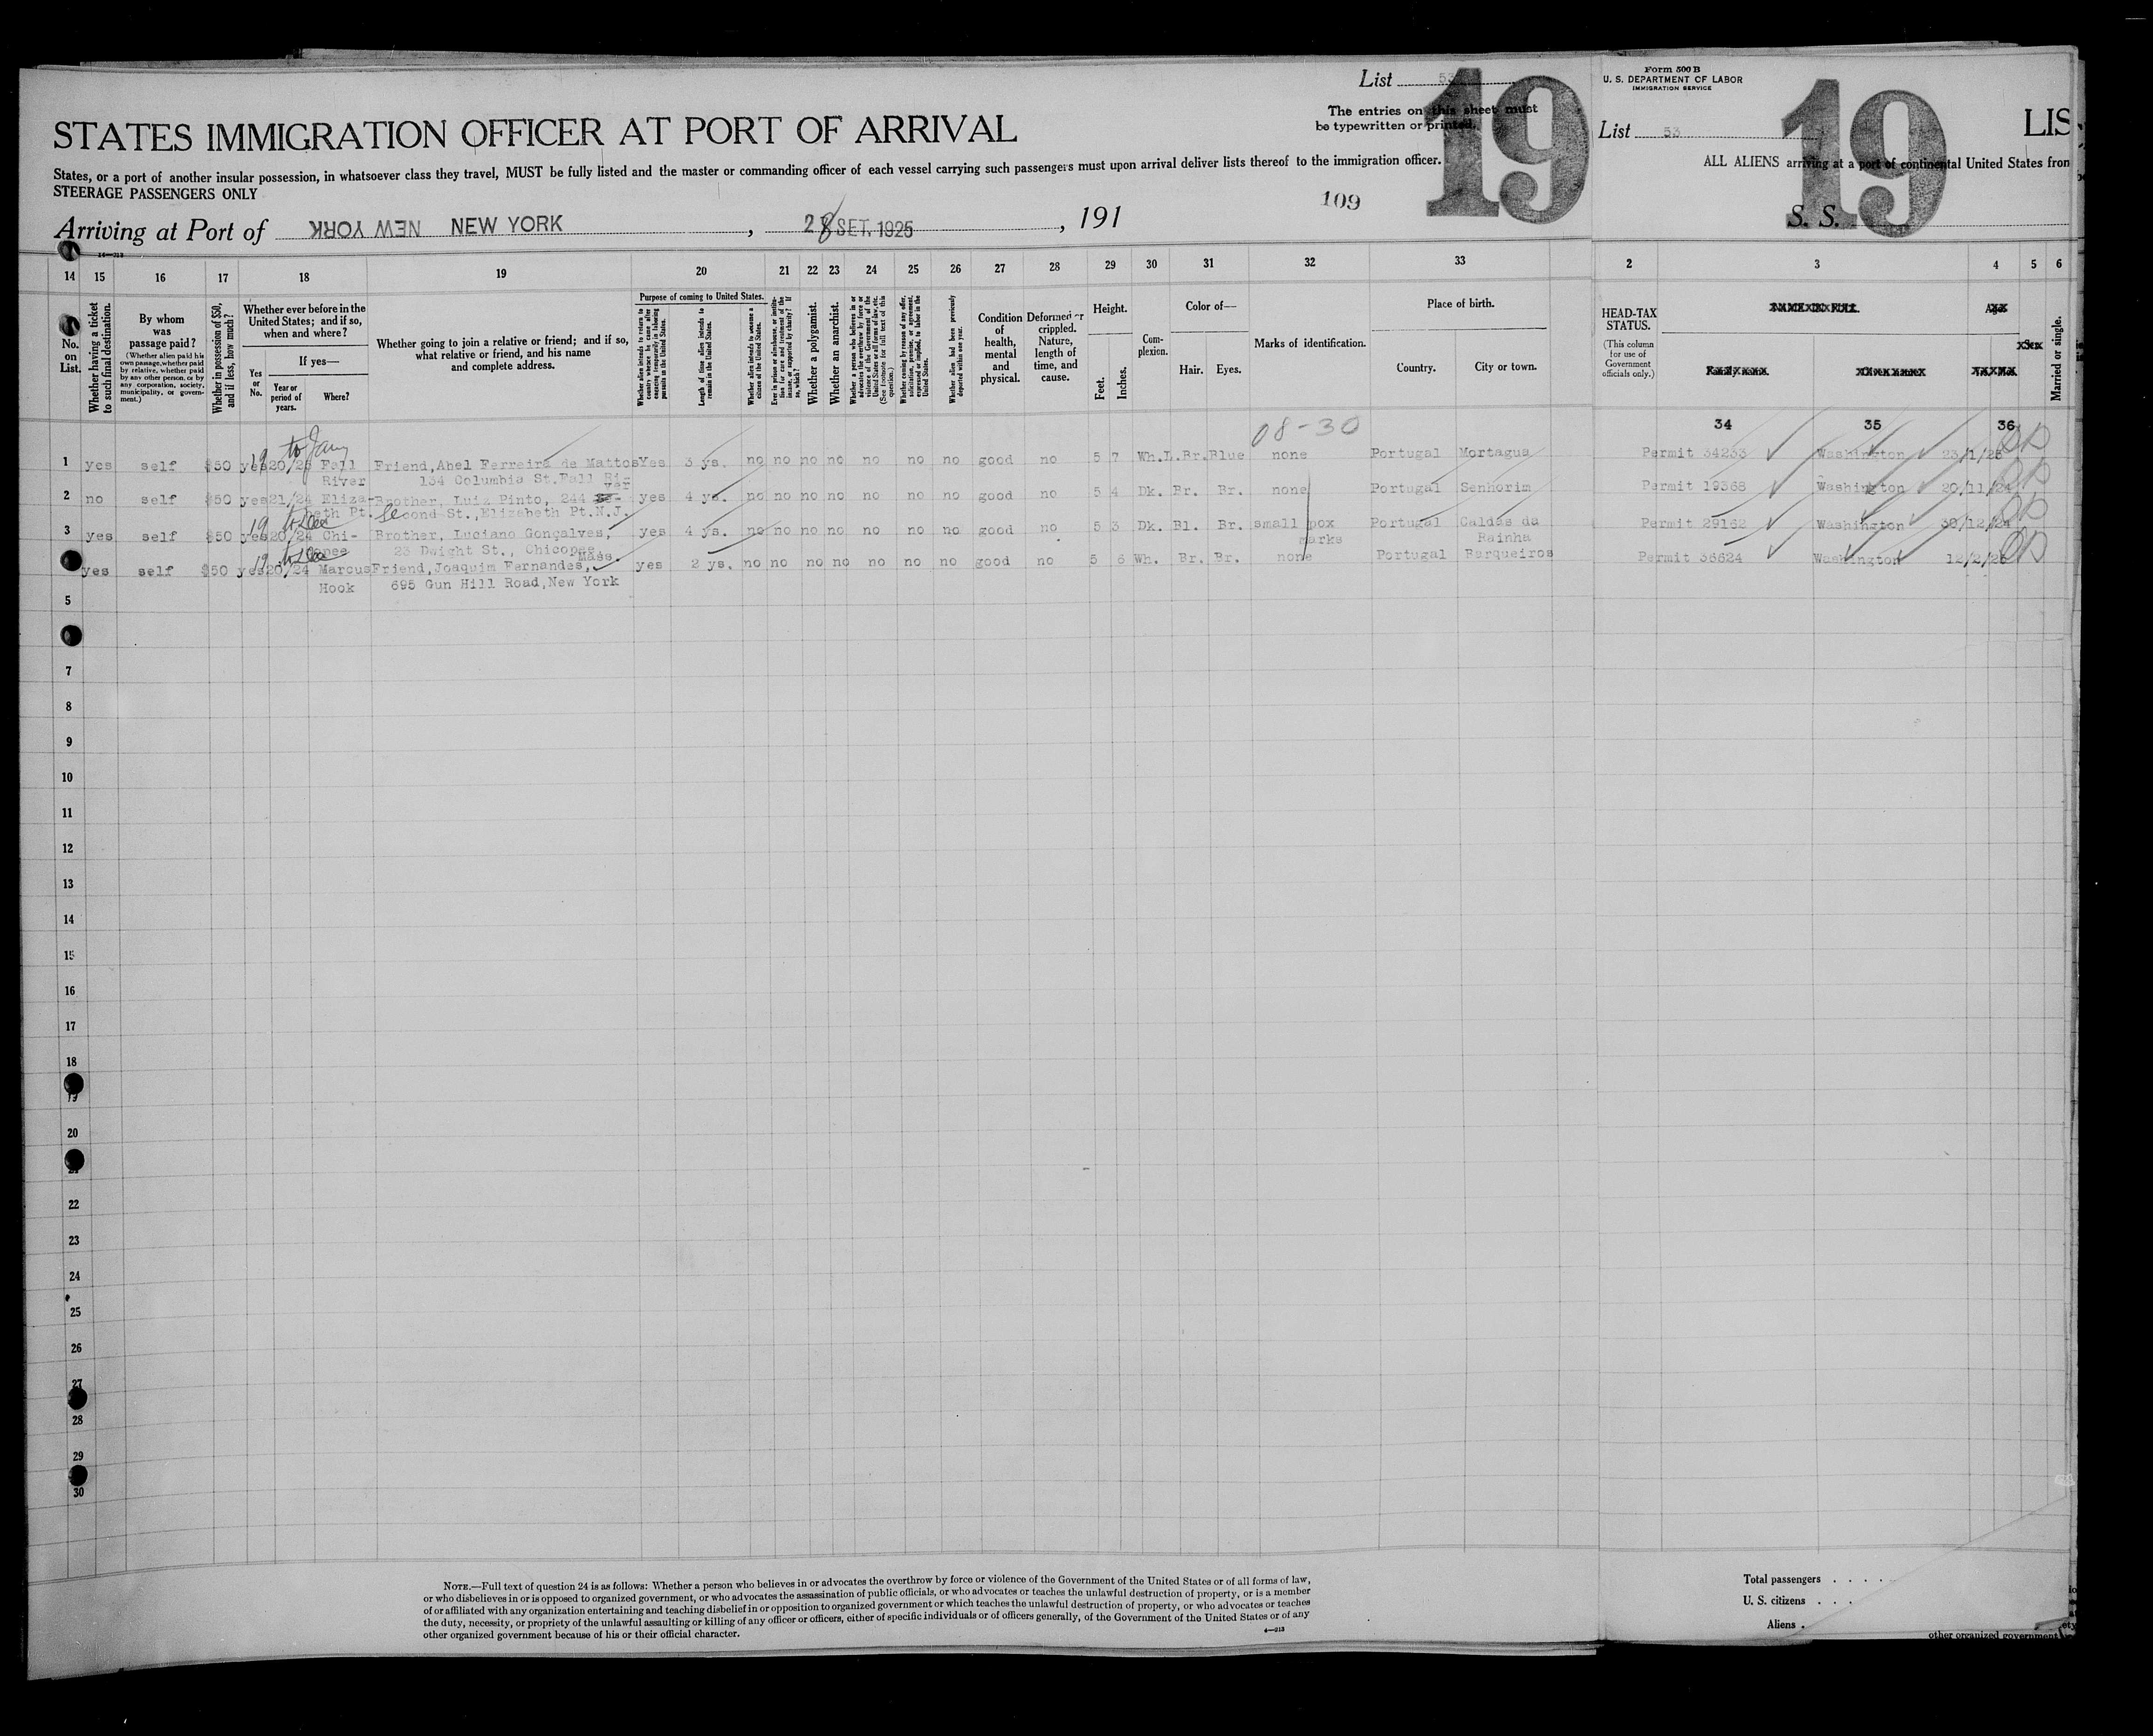 List 53
The entries on this sheet must
be typewritten or printed.
19
STATES IMMIGRATION OFFICER AT PORT OF ARRIVAL
States, or a port of another insular possession, in whatsoever class they travel, MUST be fully listed and the master or commanding officer of each vessel carrying such passengers must upon arrival deliver lists thereof to the immigration officer.
STEERAGE PASSENGERS ONLY
109
Arriving at Port of NEW YORK NEW YORK, 28 SET. 1925, 191
Form 500 B
U. S. DEPARTMENT OF LABOR
IMMIGRATION SERVICE
List 53
19
LIS
ALL ALIENS arriving at a port of continental United States from
S. S.
14 15 16 17 18 19 20 21 22 23 24 25 26 27 28 29 30 31 32 33
2 3 4 5 6
No. on List.
Whether having a ticket to such final destination.
By whom was passage paid?
(Whether alien paid his own passage, whether paid by relative, whether paid by any other person, or by any corporation, society, municipality, or government.)
Whether in possession of $50, and if less, how much?
Whether ever before in the United States; and if so, when and where?
If yes—
Yes or No.
Year or period of years.
Where?
Whether going to join a relative or friend; and if so, what relative or friend, and his name and complete address.
Purpose of coming to United States.
Whether alien intends to return to country whence he came after engaging temporarily in laboring pursuits in the United States.
Length of time alien intends to remain in the United States.
Whether alien intends to become a citizen of the United States.
Ever in prison or almshouse, or institution for care and treatment of the insane, or supported by charity? If so, which?
Whether a polygamist.
Whether an anarchist.
Whether a person who believes in or advocates the overthrow by force or violence of the Government of the United States or of all forms of law, etc. (See footnote for full text of this question.)
Whether coming by reason of any offer, solicitation, promise, or agreement, expressed or implied, to labor in the United States.
Whether alien had been previously deported within one year.
Condition of health, mental and physical.
Deformed or crippled. Nature, length of time, and cause.
Height.
Feet. Inches.
Complexion.
Color of—
Hair. Eyes.
Marks of identification.
Place of birth.
Country. City or town.
HEAD-TAX STATUS.
(This column for use of Government officials only.)
Married or single.
08-30
34 35 36
1 yes self $50 yes 19 20/25 to Jany Fall River Friend, Abel Ferreira de Mattos 134 Columbia St. Fall River Yes 3 ys. no no no no no no no good no 5 7 Wh. L.Br. Blue none Portugal Mortagua Permit 34233 Washington 23/1/25
2 no self $50 yes 21/24 Elizabeth Pt. Brother, Luiz Pinto, 244 Second St., Elizabeth Pt. N.J. yes 4 ys. no no no no no no no good no 5 4 Dk. Br. Br. none Portugal Senhorim Permit 19368 Washington 20/11/24
3 yes self $50 yes 19 20/24 to Dec Chicopee Brother, Luciano Gonçalves, 23 Dwight St., Chicopee Mass. yes 4 ys. no no no no no no no good no 5 3 Dk. Bl. Br. small pox marks Portugal Caldas da Rainha Permit 29162 Washington 30/12/24
yes self $50 yes 19 20/24 to Dec Marcus Hook Friend, Joaquim Fernandes, 695 Gun Hill Road, New York yes 2 ys. no no no no no no no good no 5 6 Wh. Br. Br. none Portugal Barqueiros Permit 36624 Washington 12/2/25
5
7
8
9
10
11
12
13
14
15
16
17
18
19
20
22
23
24
25
26
27
28
29
30
NOTE.—Full text of question 24 is as follows: Whether a person who believes in or advocates the overthrow by force or violence of the Government of the United States or of all forms of law,
or who disbelieves in or is opposed to organized government, or who advocates the assassination of public officials, or who advocates or teaches the unlawful destruction of property, or is a member
of or affiliated with any organization entertaining and teaching disbelief in or opposition to organized government or which teaches the unlawful destruction of property, or who advocates or teaches
the duty, necessity, or propriety of the unlawful assaulting or killing of any officer or officers, either of specific individuals or of officers generally, of the Government of the United States or of any
other organized government because of his or their official character.
Total passengers
U. S. citizens
Aliens
other organized government